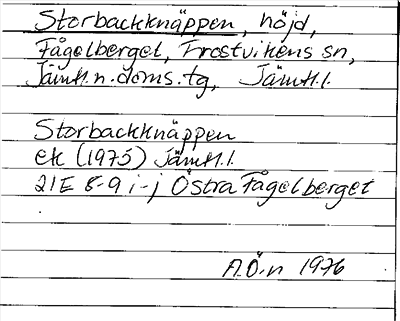 Storbackknäppen, höjd,
Fågelberget, Frostvikens sn,
Jämtl. n. doms. tg, Jämtl. l.
Storbackknäppen
ek (1975) Jämtl. l.
21E 8-9 i-j Östra Fågelberget
A.Ö-n 1976